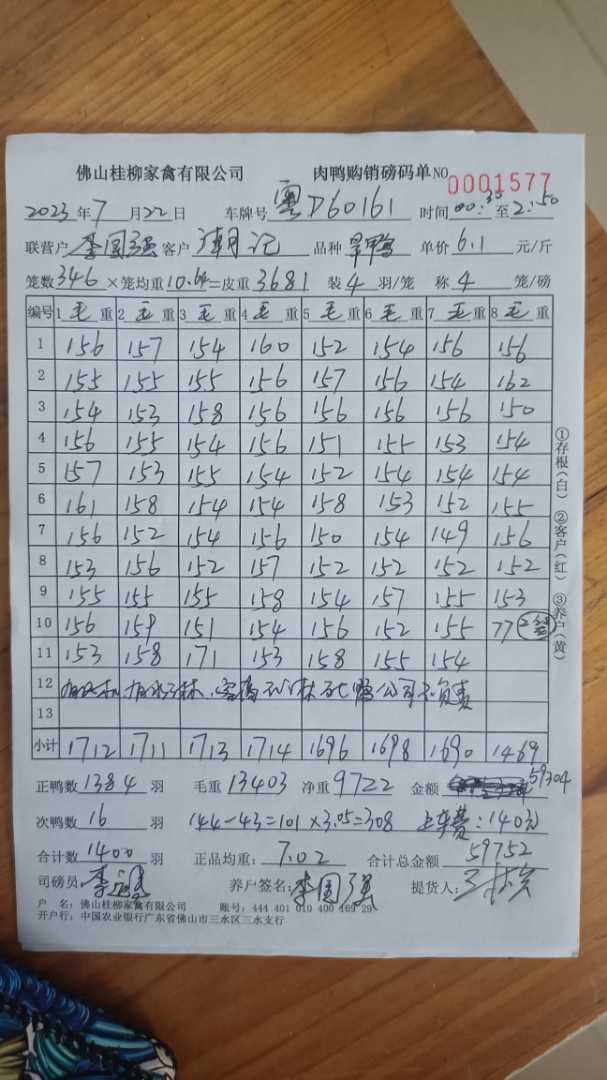 佛山桂柳家禽有限公司 肉鸭购销磅码单 NO 0001577
2023年7月22日 车牌号 粤D60161 时间00:35至2:50
联营户 李国强 客户 潮记 品种 旱鸭 单价6.1元/斤
笼数346×笼均重10.64=皮重3681 装4羽/笼 称4笼/磅
编号 1毛重 2毛重 3毛重 4毛重 5毛重 6毛重 7毛重 8毛重
1 156 157 154 160 152 154 156 156
2 155 155 155 156 157 156 154 162
3 154 153 158 156 156 156 156 150
4 156 155 154 156 151 155 153 154
5 157 153 155 154 152 154 154 154
6 161 158 154 154 158 153 152 155
7 156 152 154 156 150 154 149 156
8 153 156 152 157 152 152 152 152
9 155 155 155 158 154 157 155 153
10 156 159 151 154 156 152 155 77
11 153 158 171 153 158 155 154
12 鸭公司不负责
13
小计 1712 1711 1713 1714 1696 1698 1690 1469
正鸭数1384羽 毛重13403 净重9722 金额 59304
次鸭数16羽 144-43=101×3.05=308 上车费:140元
合计数1400羽 正品均重:7.02 合计总金额 59752
司磅员 李 养户签名:李国强 提货人:
户 名:佛山桂柳家禽有限公司 账号:444 401 010 400 469 29
开户行:中国农业银行广东省佛山市三水区三水支行
①存根(白) ②客户(红) ③养户(黄)